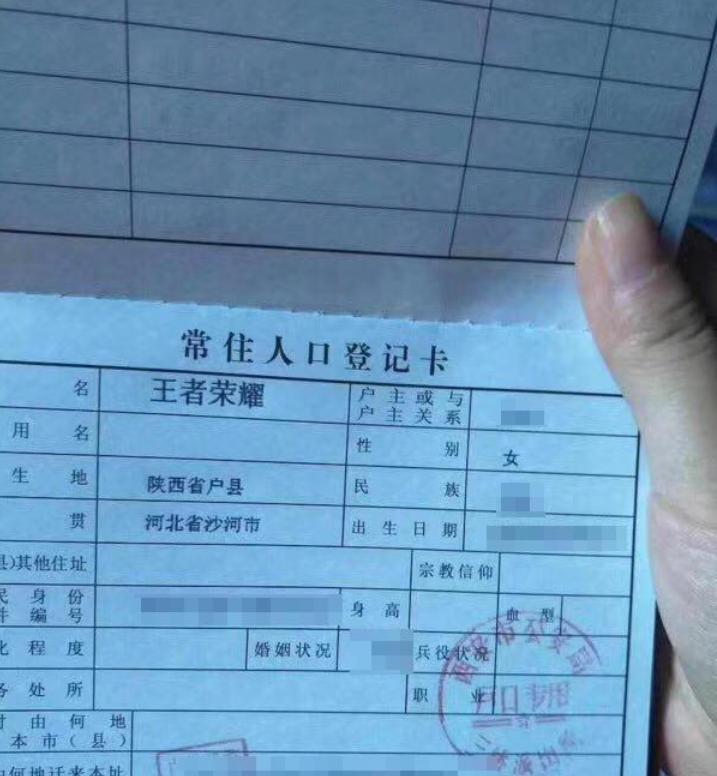 常住人口登记卡
名 王者荣耀 户主或与户主关系
用名 性别 女
生地 陕西省户县 民族
贯 河北省沙河市 出生日期
县)其他住址 宗教信仰
民身份
件编号 身高 血型
化程度 婚姻状况 兵役状况
务处所 职业
由何地
本市(县)
何地迁来本址
西安市公安局
户口专用